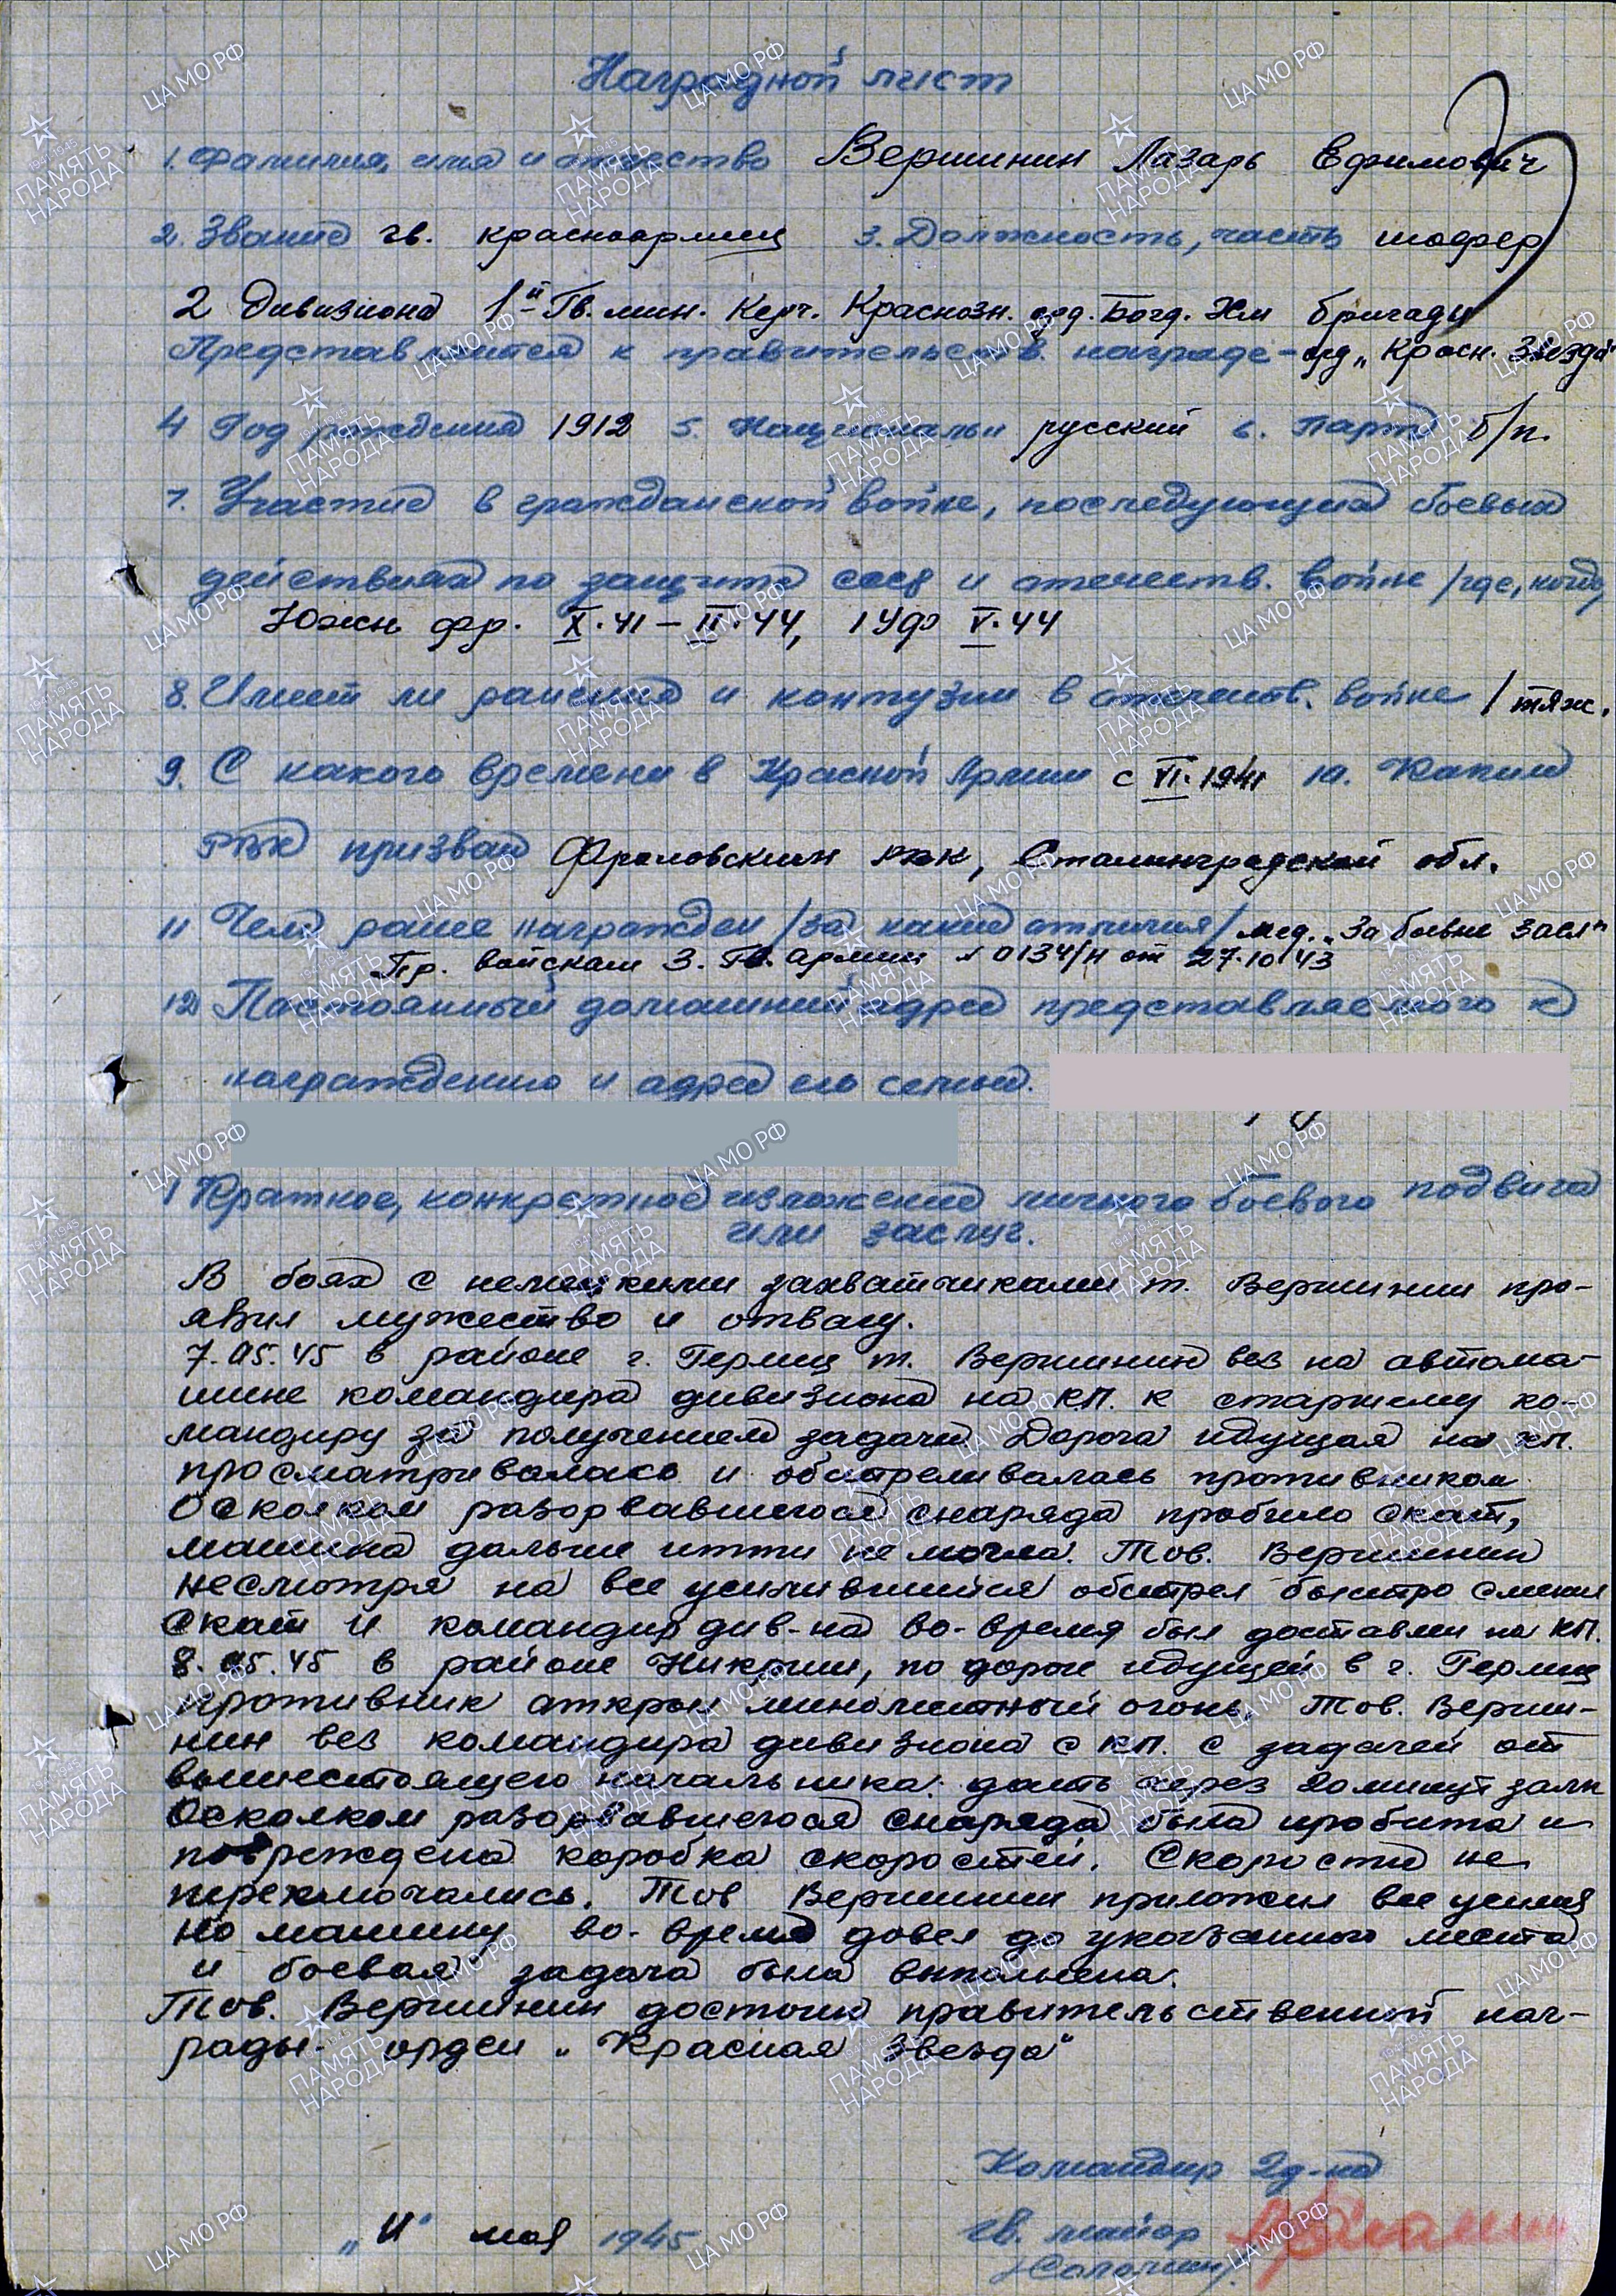 Наградной лист
1. Фамилия, имя и отчество Вершинин Лазарь Ефимович
2. Звание гв. красноармеец 3. Должность, часть шофер
2 дивизиона 1й Гв. мин. Керч. Краснозн. орд. Богд. Хм бригады
Представляется к правительств. награде - орд „Красн. Звезда"
4 Год рождения 1912 5. Национальн русский 6. Парт б/п.
7. Участие в гражданской войне, последующих боевых
действиях по защите ссср и отечеств. войне /где, когда/
Южн фр. X.41 – II.44, 1 Уф V.44
8. Имеет ли ранения и контузии в отечеств. войне 1 тяж.
9. С какого времени в Красной Армии с VI.1941 10. Каким
РВК призван Фроловским рвк, Сталинградской обл.
11 Чем ранее награжден /за какие отличия/ мед. „За боевые засл"
Пр. войскам 3. Гв. армии № 0134/н от 27.10.43
12 Постоянный домашний адрес представляемого к
награждению и адрес его семьи.
1 Краткое, конкретное изложение личного боевого подвига
или заслуг.
В боях с немецкими захватчиками т. Вершинин про-
явил мужество и отвагу.
7.05.45 в районе г. Герлиц т. Вершинин вез на автома-
шине командира дивизиона на КП. к старшему ко-
мандиру за получением задачи. Дорога идущая на кп.
просматривалась и обстреливалась противником
Осколком разорвавшегося снаряда пробило скат,
машина дальше итти не могла. Тов. Вершинин
несмотря на все усилившийся обстрел быстро сменил
скат и командир див-на во-время был доставлен на КП.
8.05.45 в районе Никриш, по дороге идущей в г. Герлиц
противник открыл минометный огонь. Тов. Верши-
нин вез командира дивизиона с КП. с задачей от
вышестоящего начальника: дать через 20 минут залп
Осколком разорвавшегося снаряда была пробита и
повреждена коробка скоростей. Скорости не
переключались. Тов Вершинин приложил все усилия
но машину во-время довел до указанного места
и боевая задача была выполнена.
Тов. Вершинин достоин правительственной наг-
рады- орден „Красная Звезда"
Командир 2 д-на
„11" мая 1945 гв. майор
ЦА МО РФ
ПАМЯТЬ НАРОДА
1941-1945